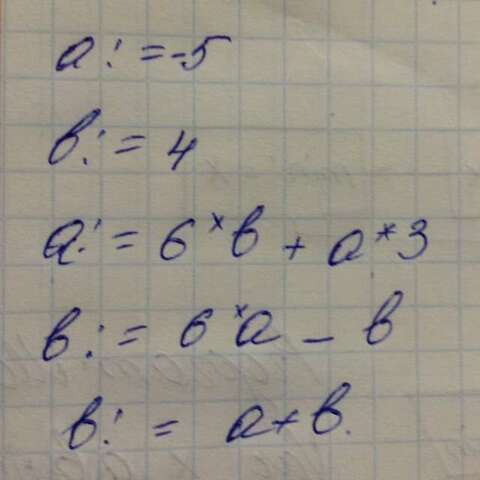 a := -5
b := 4
a := 6 * b + a * 3
b := 6 * a - b
b := a + b.